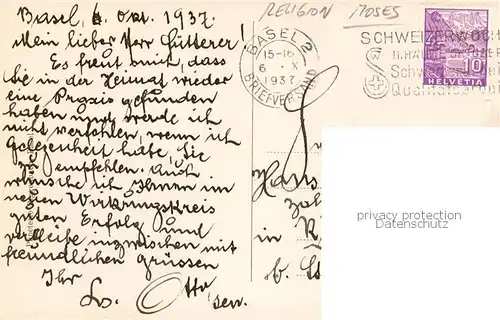 Basel, 6. Okt. 1937.
Mein lieber Herr Fütterer!
Es freut mich, dass
Sie in der Heimat wieder
eine Praxis gefunden
haben und werde ich
nicht verfehlen, wenn ich
Gelegenheit habe, Sie
zu empfehlen. Auch
wünsche ich Ihnen im
neuen Wirkungskreis
guten Erfolg und
verbleibe inzwischen mit
freundlichen Grüssen
Ihr
Otto
sen.
RELIGION MOSES
BASEL 2
15-16
6 X
1937
BRIEFVERSAND
SCHWEIZERWOCHE
10
HELVETIA
Hans
in
b.
privacy protection
Datenschutz